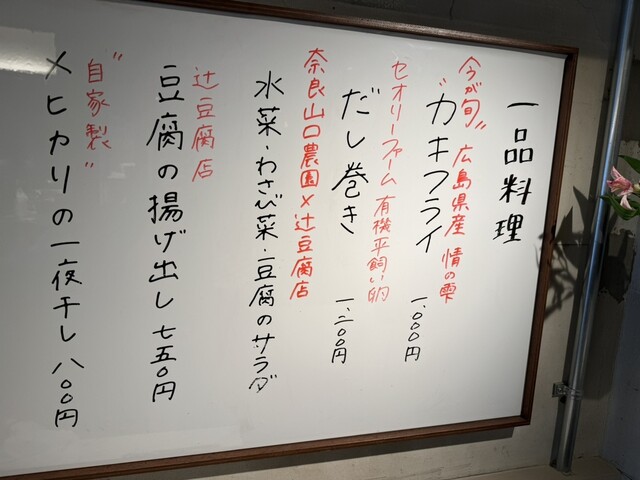 一品料理
"今が旬" 広島県産 情の雫
カキフライ 一、〇〇〇円
セオリーファーム 有機平飼い卵
だし巻き 一、二〇〇円
奈良山口農園×辻豆腐店
水菜・わさび菜・豆腐のサラダ
辻豆腐店
豆腐の揚げ出し 七五〇円
"自家製"
メヒカリの一夜干し 八〇〇円